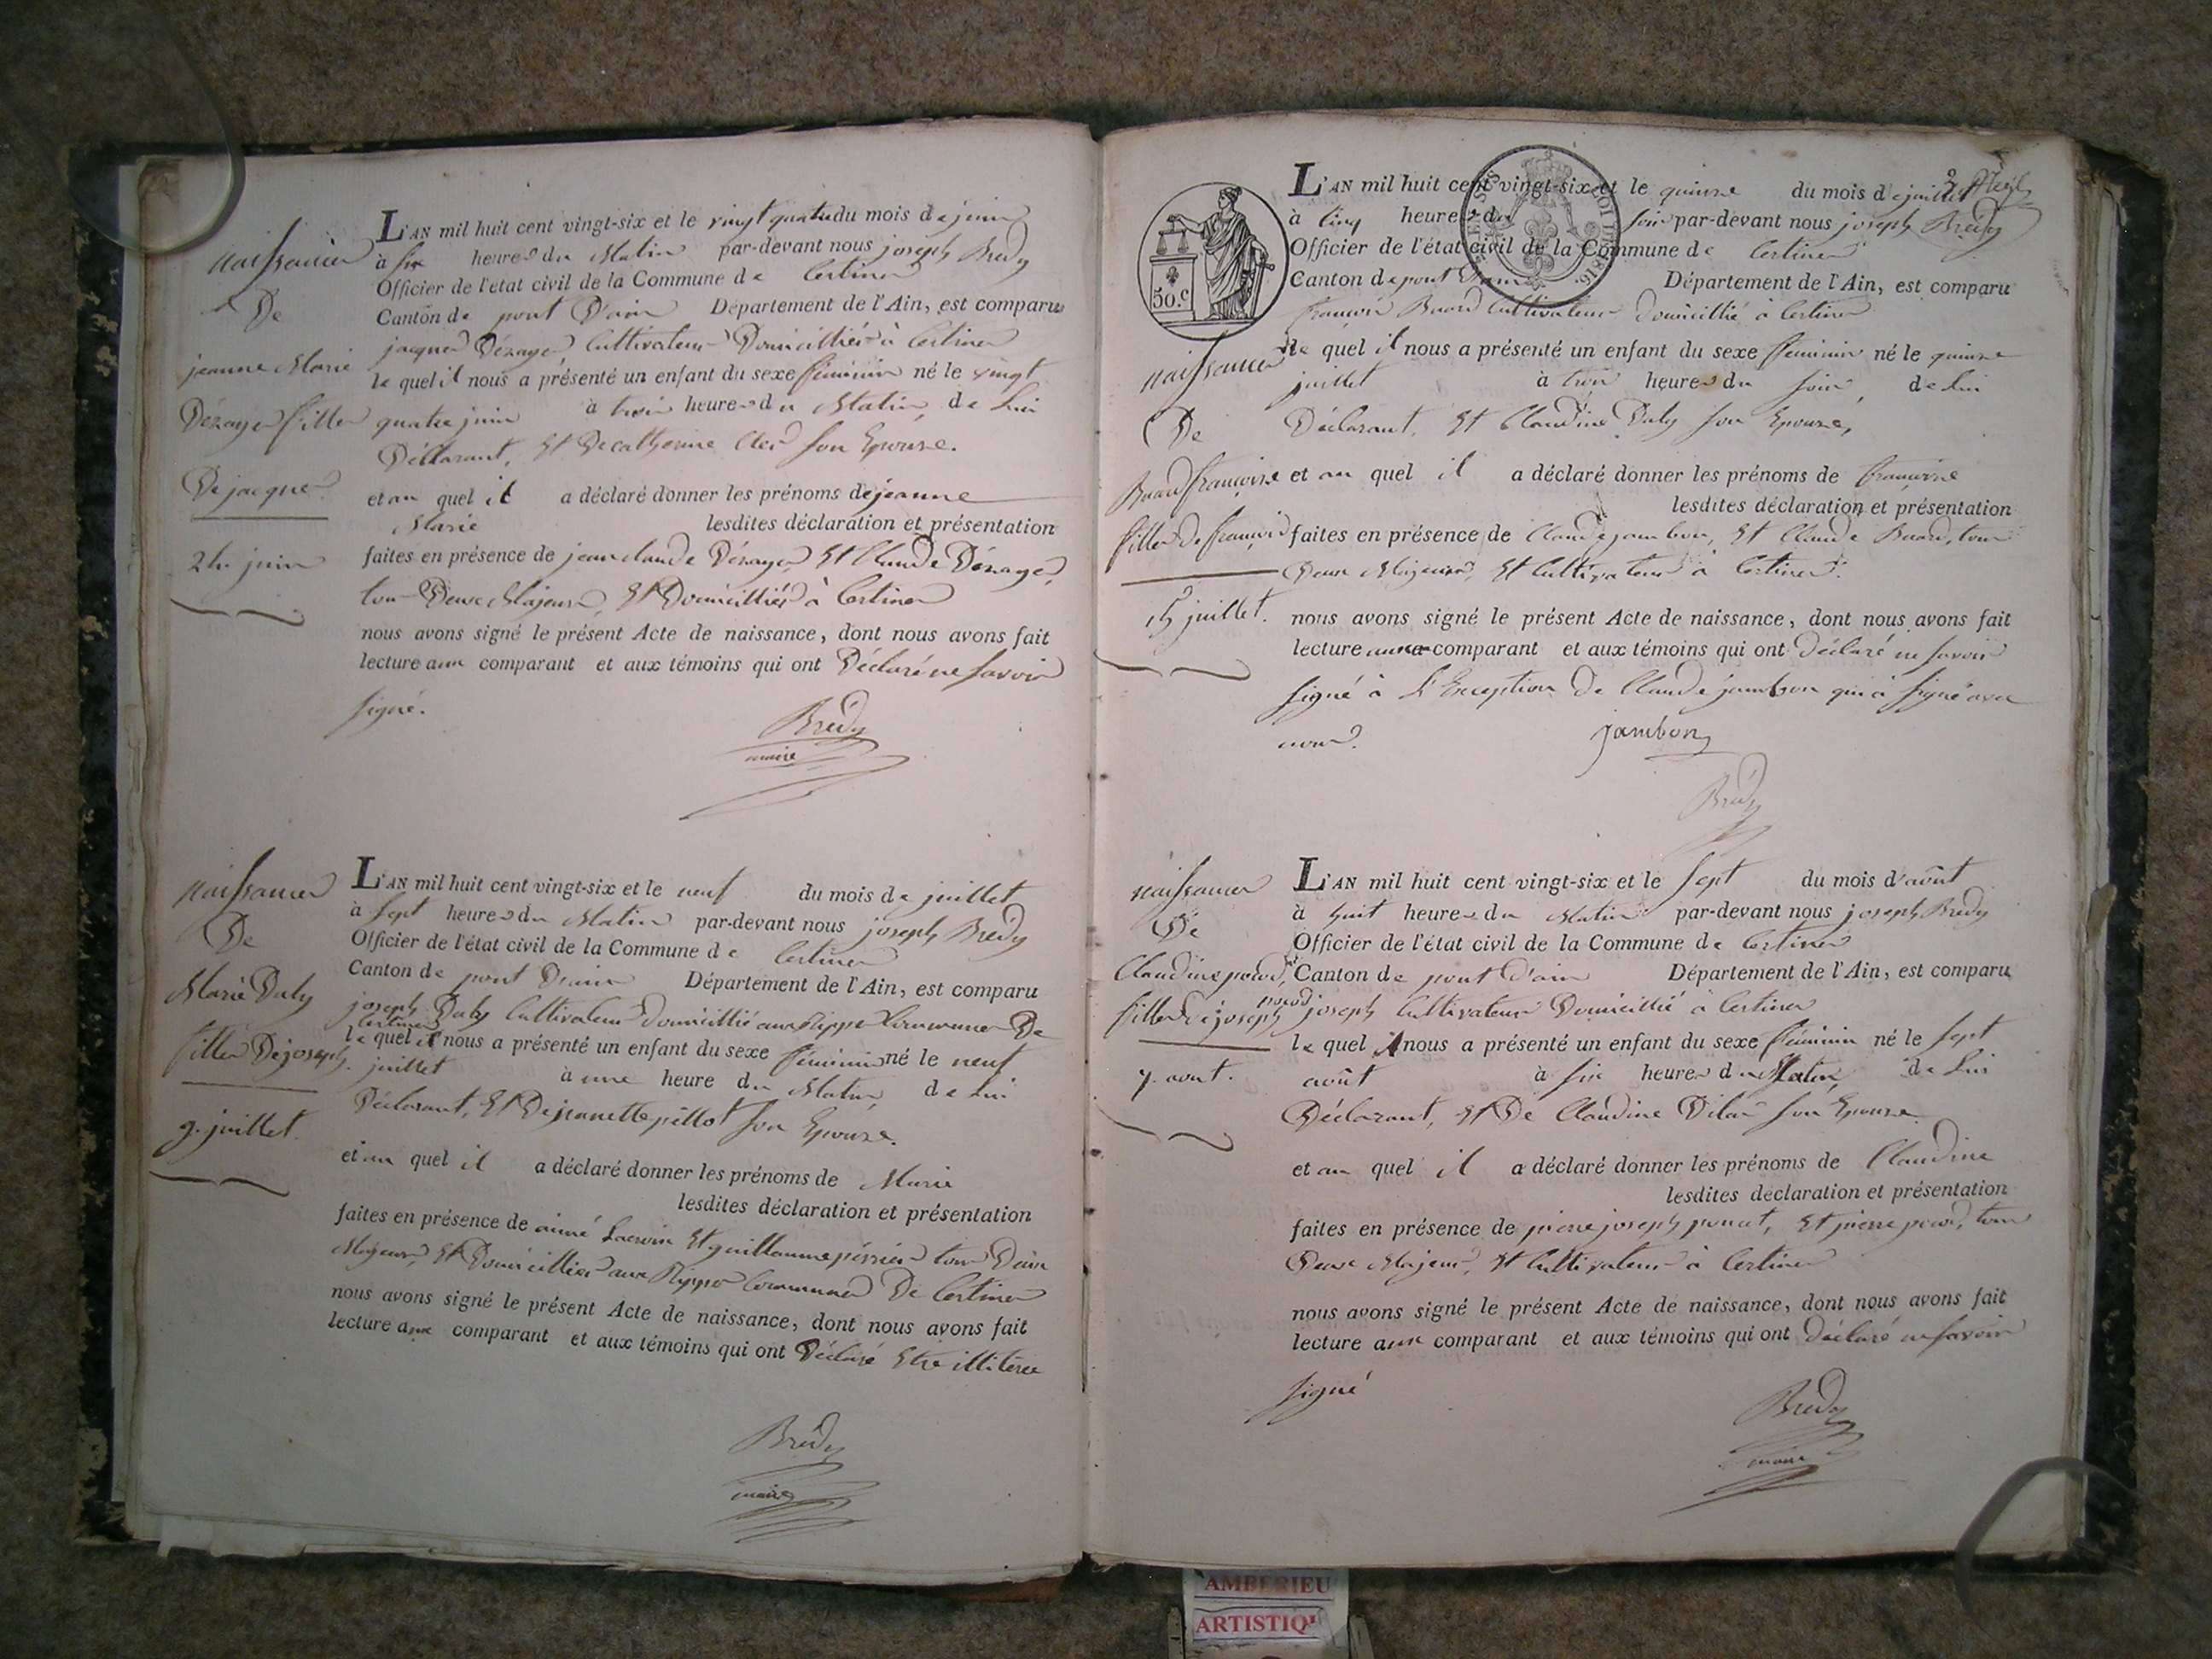 naissance
De
jeanne Marie
Dézayes fille
De jacques
24 juin
L'AN mil huit cent vingt-six et le vingt quatre du mois de juin
à six heures du Matin par-devant nous joseph Bredy
Officier de l'état civil de la Commune de Certines
Canton de pont D'ain Département de l'Ain, est comparu
jacques Cultivateur Domicilliés à Certines
le quel il nous a présenté un enfant du sexe féminin né le vingt
quatre juin à trois heures du Matin, de Lui
Déclarant, Et De catherine son Epouse.
et au quel il a déclaré donner les prénoms de jeanne
Marie lesdites déclaration et présentation
faites en présence de jean claude Et Claude
tous Deux Majeurs, Et Domicilliés à Certines
nous avons signé le présent Acte de naissance, dont nous avons fait
lecture aux comparant et aux témoins qui ont Déclaré ne savoir
signé.
Bredy
maire
naissance
De
Marie Daly
fille De joseph
9. juillet
L'AN mil huit cent vingt-six et le neuf du mois de juillet
à sept heures du Matin par-devant nous joseph Bredy
Officier de l'état civil de la Commune de Certines
Canton de pont D'ain Département de l'Ain, est comparu
joseph Daly Cultivateur domicillié aux Rippes Commune De
Certines
le quel il nous a présenté un enfant du sexe féminin né le neuf
juillet à une heure du Matin, de Lui
Déclarant, Et De jeanette pillot son Epouse.
et au quel il a déclaré donner les prénoms de Marie
lesdites déclaration et présentation
faites en présence de aimé Et guillaume tous Deux
Majeurs, Et Domicilliés aux Rippes Commune De Certines
nous avons signé le présent Acte de naissance, dont nous avons fait
lecture aux comparant et aux témoins qui ont Déclaré Etre
Bredy
maire
50.c
naissance
De
Buard françoise
fille de françois
15 juillet.
L'AN mil huit cent vingt-six et le quinze du mois de juillet
à cinq heures du soir par-devant nous joseph Bredy
Officier de l'état civil de la Commune de Certines
Canton de pont D'ain Département de l'Ain, est comparu
françois Buard Cultivateur domicillié à Certines
le quel il nous a présenté un enfant du sexe féminin né le quinze
juillet à trois heures du soir, de Lui
Déclarant, Et Claudine Daly son Epouse,
et au quel il a déclaré donner les prénoms de françoise
lesdites déclaration et présentation
faites en présence de Claude jambon, Et Claude Buard, tous
Deux Majeurs, Et Cultivateurs à Certines.
nous avons signé le présent Acte de naissance, dont nous avons fait
lecture aux comparant et aux témoins qui ont Déclaré ne savoir
signé à L'Exception De Claude jambon qui à signé avec
nous.
jambon
Bredy
naissance
De
Claudine
fille de joseph
7. aout.
L'AN mil huit cent vingt-six et le sept du mois d'août
à huit heures du Matin par-devant nous joseph Bredy
Officier de l'état civil de la Commune de Certines
Canton de pont d'ain Département de l'Ain, est comparu
joseph Cultivateur Domicillié à Certines
le quel il nous a présenté un enfant du sexe féminin né le sept
août à six heures du Matin, de Lui
Déclarant, Et De Claudine son Epouse
et au quel il a déclaré donner les prénoms de Claudine
lesdites déclaration et présentation
faites en présence de pierre joseph Et pierre tous
Deux Majeurs, Et Cultivateurs à Certines
nous avons signé le présent Acte de naissance, dont nous avons fait
lecture aux comparant et aux témoins qui ont Déclaré ne savoir
signé
Bredy
maire
AMBERIEU
ARTISTIQ